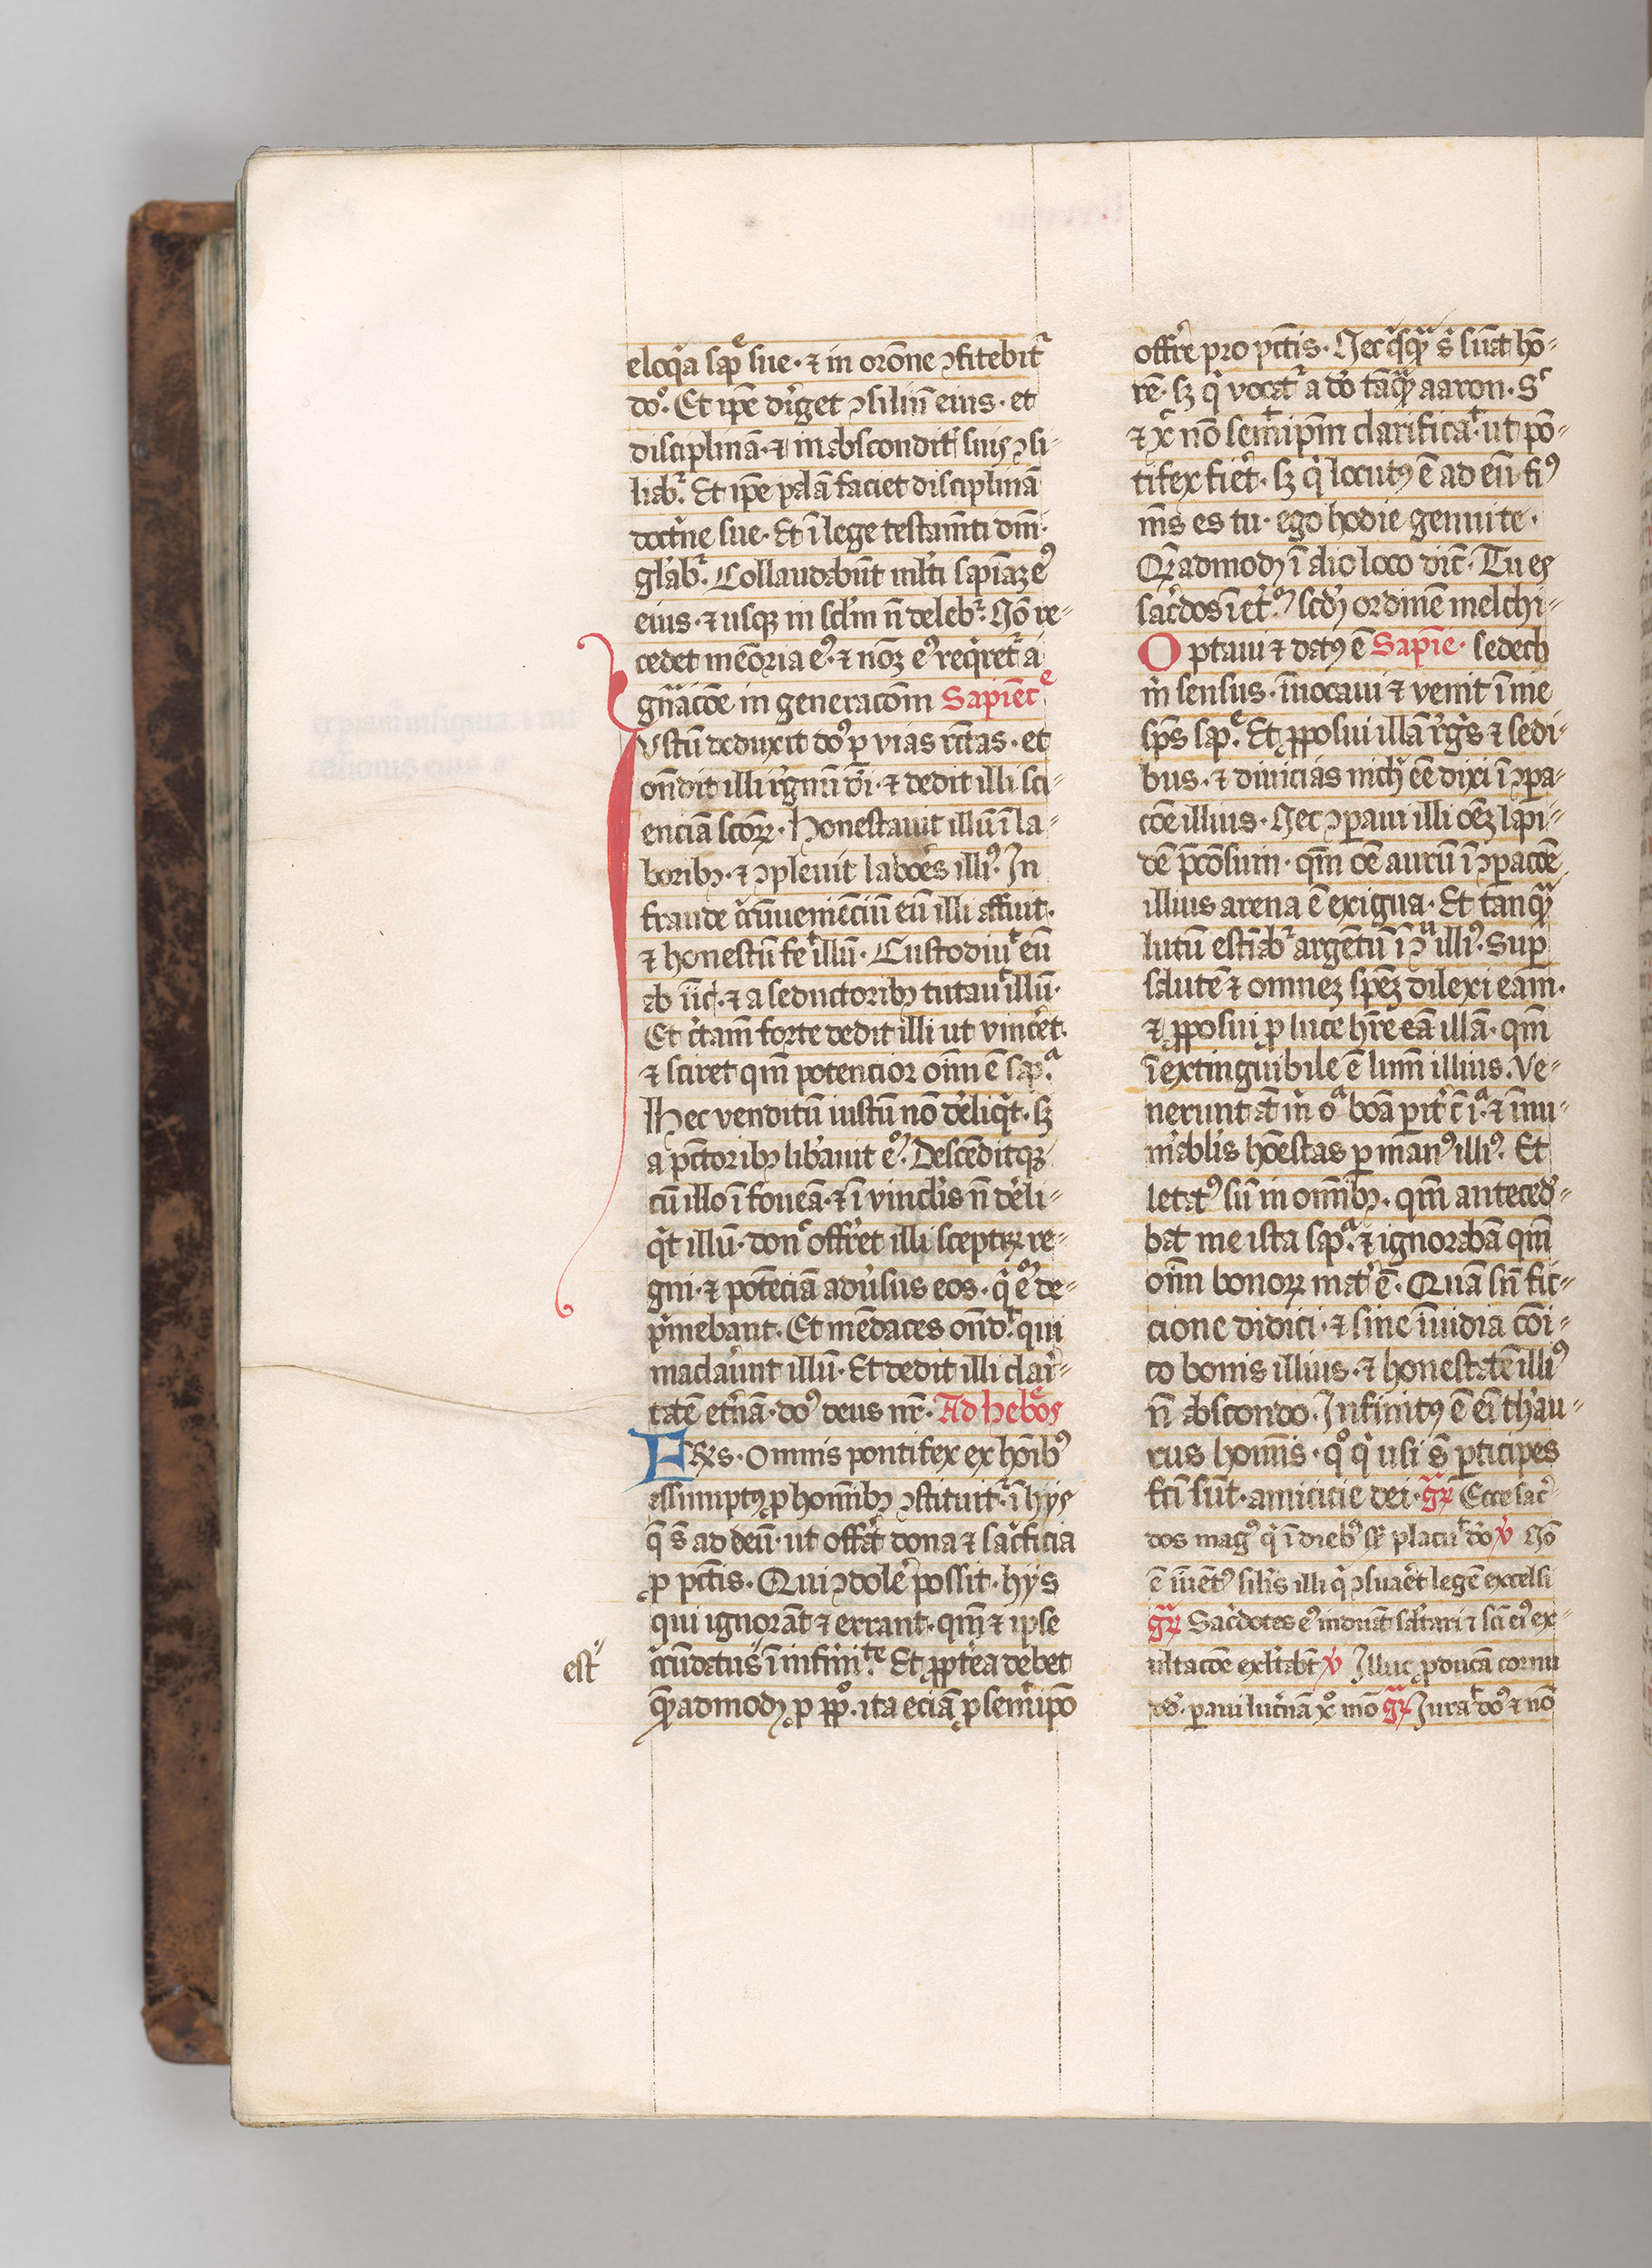 eloq̄a sap̄ᵉ sue · ⁊ in orōne ꝯfitebitᷣ
dō⁰. Et ip̄e diriget ꝯsiliū eius · et
disciplinā · ⁊ in abscondit̄ suis ꝯsi-
liab᷑. Et ip̄e palā faciet disciplinā
doctͥne sue · Et ī lege testam̄ti dn̄i
gl̄ab᷑. Collaudabūt ml̄ti sapiāꝫ
eius · ⁊ usqꝫ in scl̄m n̄ deleb᷑. Nō re-
cedet mēoria eꝰ · ⁊ nom̄ eꝰ reqͥret᷑ a
gn̄acōe in generacōm Sapienc̄ᵉ
Iustū deduxit dō⁹ ꝑ vias rc̄tas · et
on̄dit illi regnū dī · ⁊ dedit illi sci-
enciā scōꝝ · Honestauit illū ī la-
boribꝫ · ⁊ ꝯpleuit labōes illiꝰ. In
fraude cͥcūueniēciū eū illi affuit ·
⁊ honestū fēᵗ illū · Custodiuᵗ eū
ab īīc̄ · ⁊ a seductoribꝫ tutauᵗ illū ·
Et c̄tam̄ forte dedit illi ut vinc̄et ·
⁊ sciret qm̄ potencior oīm ē sap̄ᵃ.
Hec venditū iustū nō deͬliqͥt · sꝫ
a pc̄toribꝫ lib̄auit eū. Descēditqꝫ
cū illo ī foueā · ⁊ ī vinclis n̄ deͬli-
qͥt illū · donᶜ affr̄et illi sceptrꝝ re-
gni · ⁊ potēciā adu̓sus eos · qͥ eū de-
pͥmebant · Et mēdaces on̄dᵗ qui
maclau̓unt illū · Et dedit illi clari-
tatē et̓nā · dō⁹ deus nr̄ · Ad hebͬos
FRēs · Omnis pontifex ex hōibꝰ
assumptꝰ ꝓ hoīnibꝫ ꝯstituit᷑ ī hys
q̄ s̄ ad deū · ut offāt dona ⁊ sac̓ficia
ꝓ pc̄tis · Qui ꝯdole̓ possit · hys
qui ignorāt ⁊ errant · qm̄ ⁊ ipse
est
cͥcūdatus īfirmiᵗᵉ. Et ꝓpt̓ea debet
qm̄admodꝫ ꝓ pp̄lo · ita eciā ꝓ semeͭipō
offer̄e pro pc̄tis · Nec qͥsqᷓ s̄ sumāt hō-
rē · sꝫ qͥ vocat᷑ a dō tāqᷓ aaron · Sᶜ
⁊ xᷣ nō semͭipm̄ clarificaᵗ · ut pō-
tifex fie̓t · sꝫ qͥ locutꝰ ē ad eū · fiꝰ
m̄s es tu · ego hodie genui te ·
Qm̄admodꝫ ī alio loco dic̄ · Tu es
sac̓dos ī et̓nū sc̄dꝫ ordinē melchi-
Optaui ⁊ datꝰ ē Sapīe · sedech
m̄ sensus · īuocaui ⁊ venit ī me
sp̄s sap̄ᵉ. Et ꝓposui illā rͬgͥs ⁊ sedi-
bus · ⁊ diuicias nich̓ eē dixi ī ꝯpa-
cōe illius · Nec ꝯparaui illi oēꝫ lapi-
dē pͨcōsum · qm̄ oē aurū ī ꝯpacōe
illius arena ē exigua · Et tanqᷓ
lutū estīab᷑ argētū ī ꝯᵃ illiꝰ. Sup̄
salutē ⁊ omnez spēꝫ dilexi eam ·
⁊ ꝓposui ꝓ luce hr̄e eā illā · qm̄
īextinguibile ē lum̄ illius. Ve-
nerunt āt m̄ oᵃ boā pit̓ cū īᵃ · ⁊ īnu-
m̓ablīs hōestas ꝑ manꝰ illiꝰ. Et
letatꝰ sū in om̄ibꝫ · qm̄ anteced̓-
bat me ista sap̄ᵃ · ⁊ ignorabā qm̄
oīm bonoꝝ mat̓ ē · Quā sn̄ fic-
cione didici · ⁊ sine īuidia cōi-
co bonis illius · ⁊ honestatē illiꝰ
n̄ abscondo · Infinitꝰ ē eī thau-
rus homīs · qͦ qͥ usi s̄ ꝑticipes
fc̄i sūt · amicicie dei · gr̄ Ecce sac̓-
dos magꝰ qͥ ī diebꝰ s̄ placuᵗ dō v̄ Nō
ē īuētꝰ silīs illi qͥ ꝯsuaret legē excelsi
gr̄ Sac̓dotes eꝰ induāt sal̄tari ⁊ sc̄i eꝰ ex-
ultacōe exl̄tabt v̄ Illuc ꝓducā cornu
dd̄ · ꝑaui luc̓nā xͦ meō gr̄ Iuraᵗ dō⁹ ⁊ nō